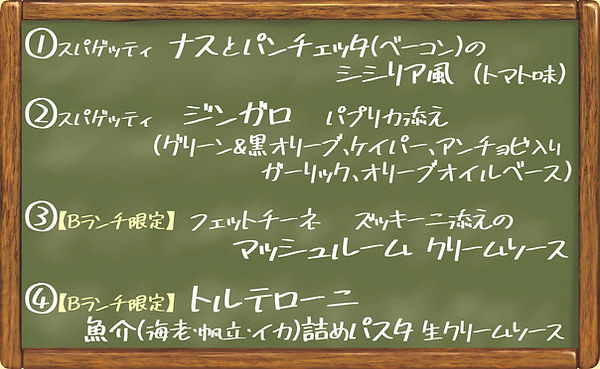 ①スパゲッティ ナスとパンチェッタ(ベーコン)の
シシリア風 (トマト味)
②スパゲッティ ジンガロ パプリカ添え
(グリーン&黒オリーブ、ケイパー、アンチョビ入り
ガーリック、オリーブオイルベース)
③【Bランチ限定】 フェットチーネ ズッキーニ添えの
マッシュルーム クリームソース
④【Bランチ限定】 トルテローニ
魚介(海老・帆立・イカ)詰めパスタ 生クリームソース